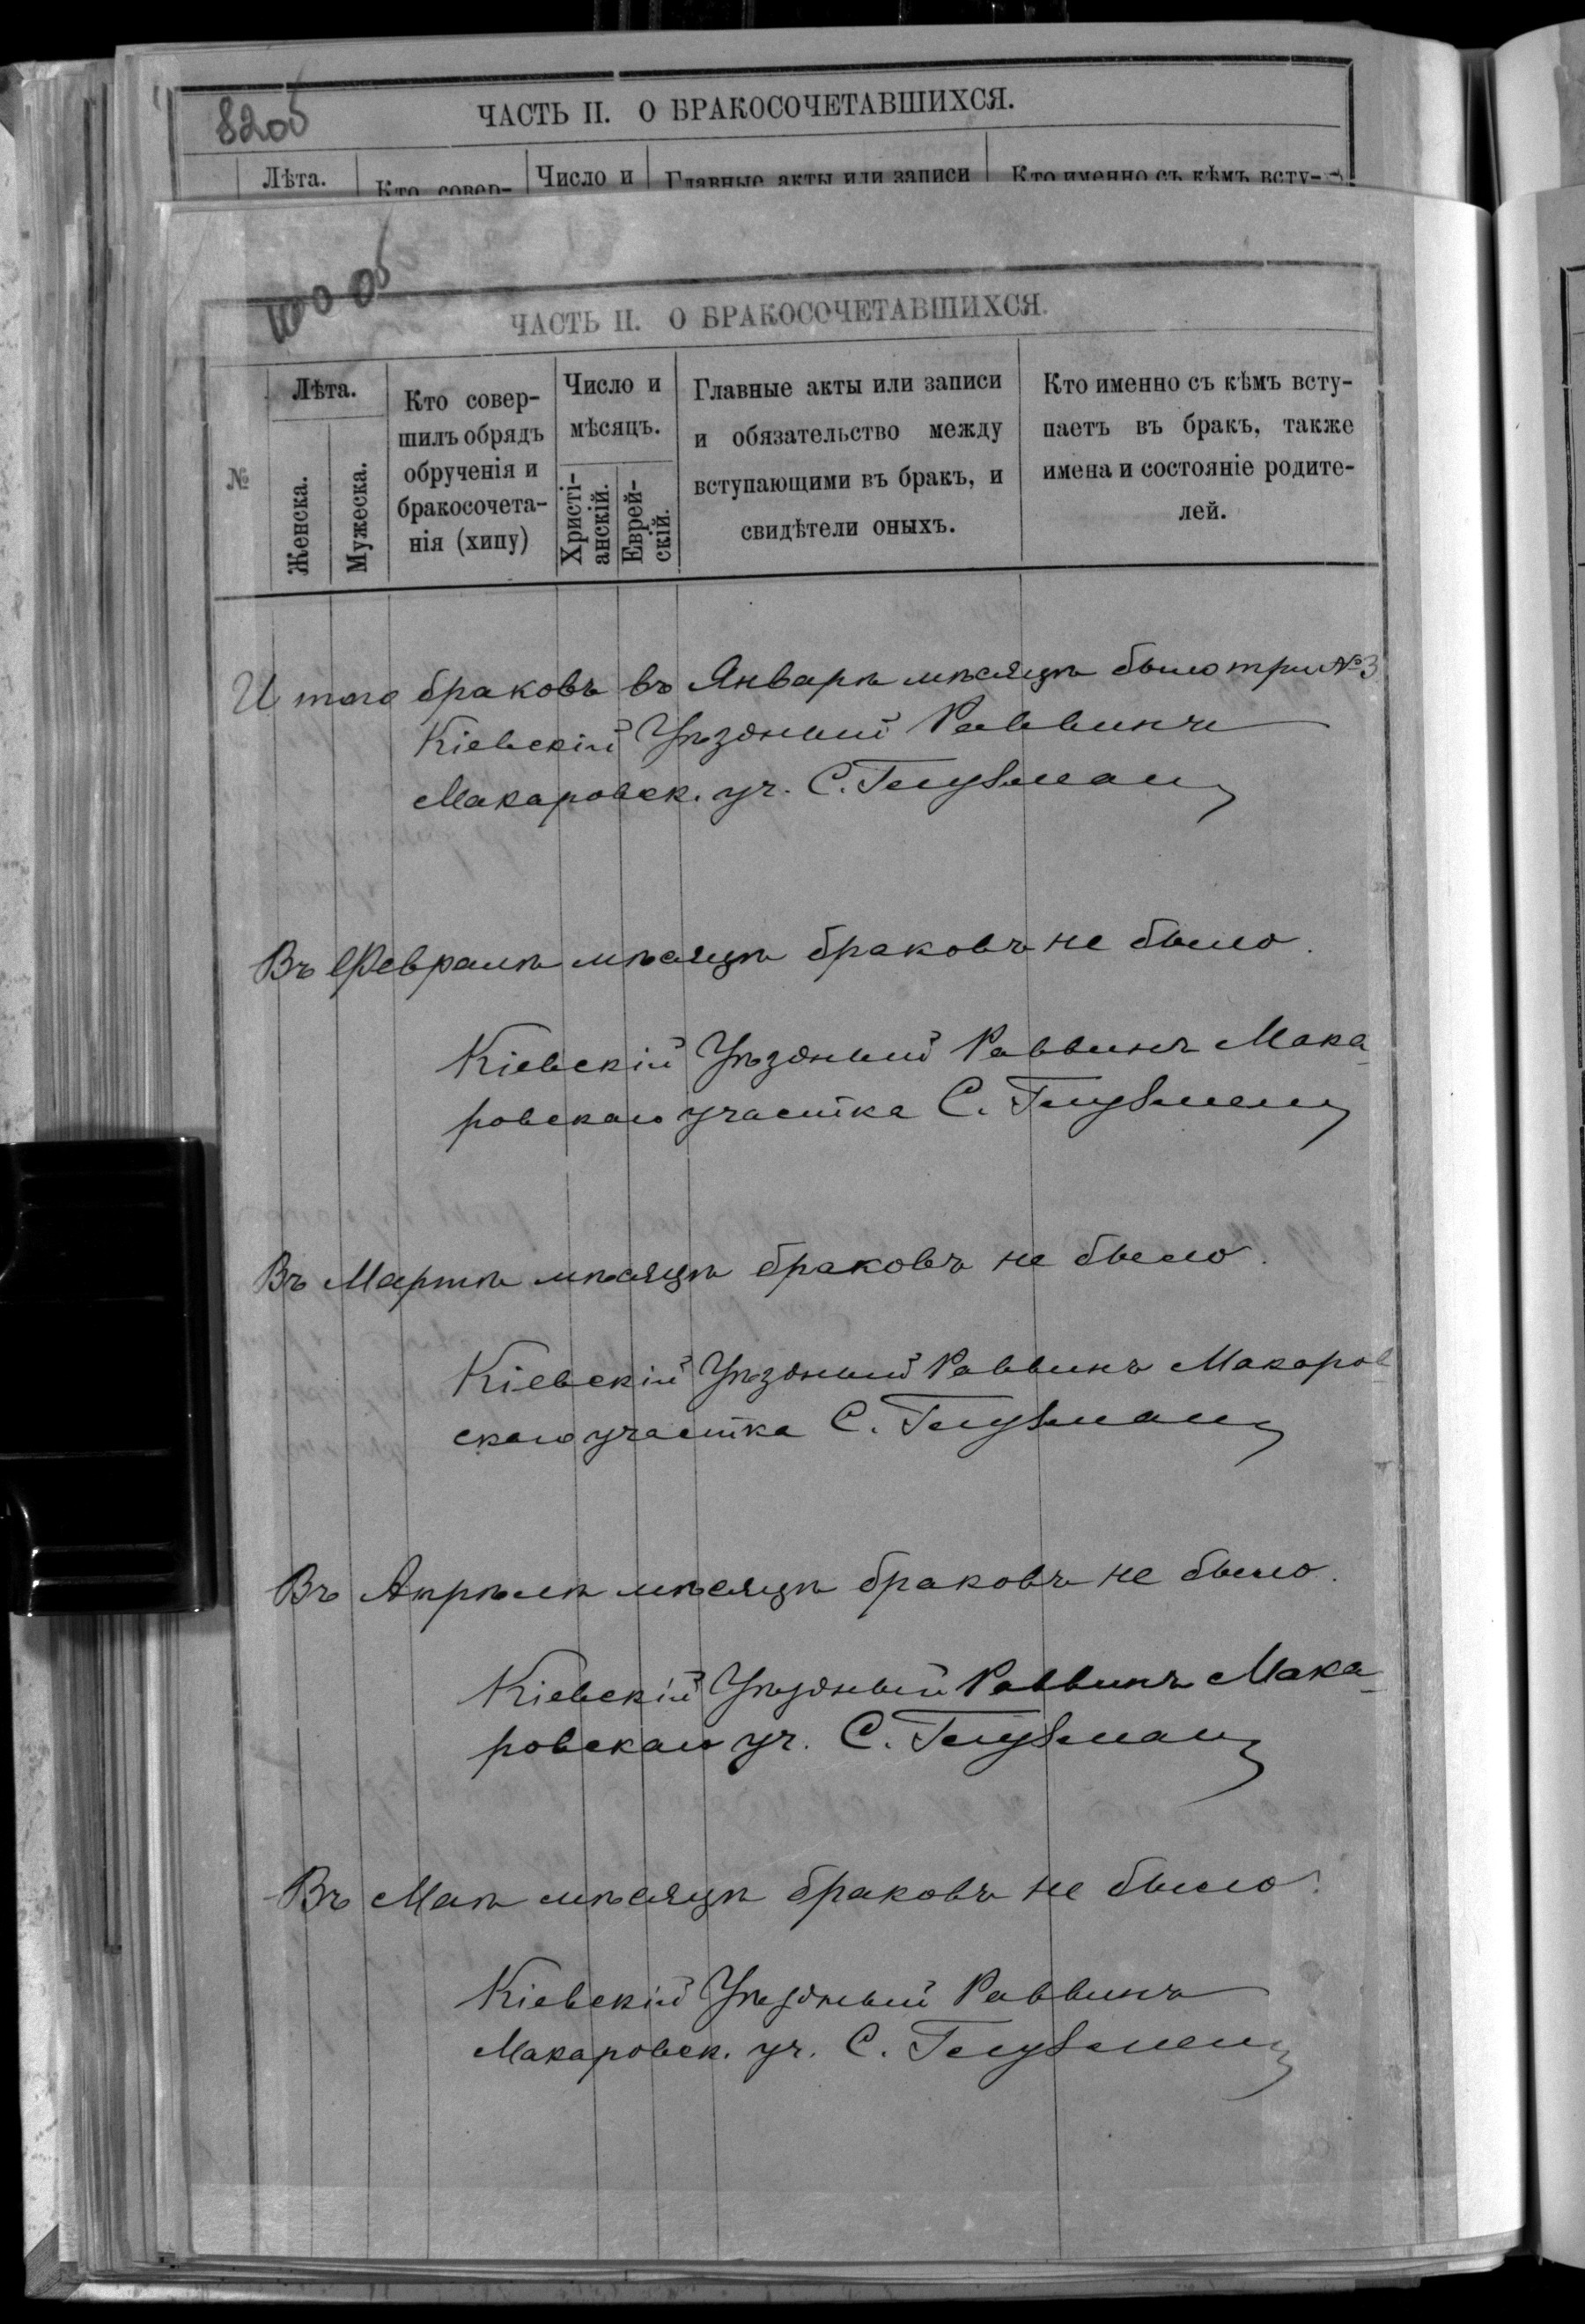 820 об
ЧАСТЬ II. О БРАКОСОЧЕТАВШИХСЯ.
Лѣта.
Кто совер-
Число и
Главные акты или записи
Кто именно съ кѣмъ всту-
об
ЧАСТЬ II. О БРАКОСОЧЕТАВШИХСЯ.
№
Лѣта.
Женска.
Мужеска.
Кто совер-
шилъ обрядъ
обрученія и
бракосочета-
нія (хипу)
Число и
мѣсяцъ.
Христі-
анскій.
Еврей-
скій.
Главные акты или записи
и обязательство между
вступающими въ бракъ, и
свидѣтели оныхъ.
Кто именно съ кѣмъ всту-
паетъ въ бракъ, также
имена и состояніе родите-
лей.
Итого браковъ въ Январѣ мѣсяцѣ было три №3
Кіевскій Уѣздный Раввинъ
Макаровск. уч. С.
Въ Февралѣ мѣсяцѣ браковъ не было.
Кіевскій Уѣздный Раввинъ Мака-
ровскаго участка С.
Въ Мартѣ мѣсяцѣ браковъ не было.
Кіевскій Уѣздный Раввинъ Макаров
скаго участка С.
Въ Апрѣлѣ мѣсяцѣ браковъ не было.
Кіевскій Уѣздный Раввинъ Мака-
ровскаго уч. С.
Въ Маѣ мѣсяцѣ браковъ не было.
Кіевскій Уѣздный Раввинъ
Макаровск. уч. С.